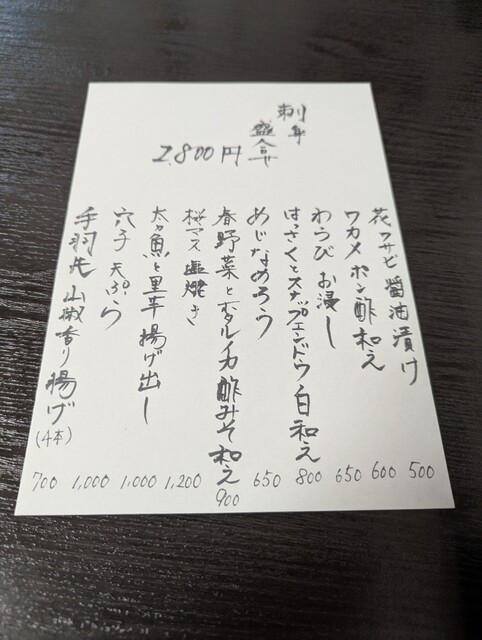 刺身
盛合せ
2,800円
花ワサビ 醤油漬け
500
ワカメ ポン酢和え
600
わらび お浸し
650
はっさくとスナップエンドウ 白和え
800
めじなめろう
650
春野菜とホタルイカ 酢みそ和え
900
桜マス 塩焼き
1,200
太刀魚と里芋 揚げ出し
1,000
穴子 天ぷら
1,000
手羽先 山椒香り揚げ
(4本)
700